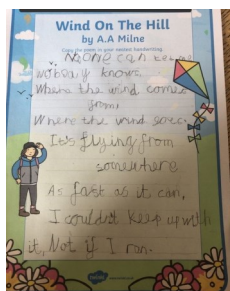 Wind On The Hill
by A.A Milne
Copy the poem in your neatest handwriting.
No one can tell me
nobody knows.
Where the wind comes
from,
Where the wind goes.
It's flying from
somewhere
As fast as it can,
I couldn't keep up with
it, Not if I ran.